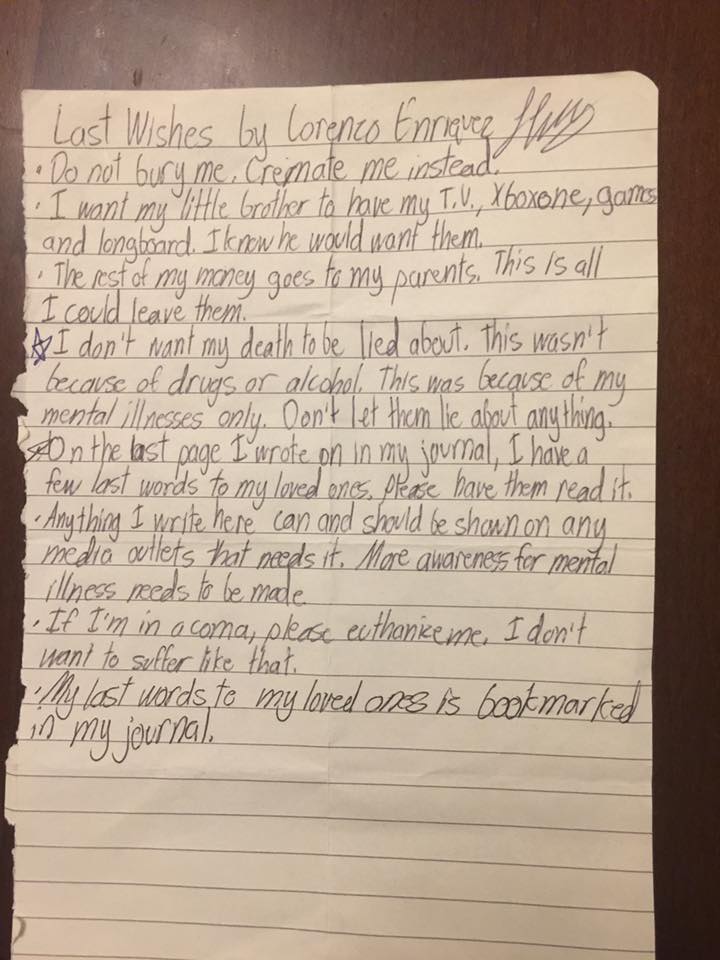 Last Wishes by Lorenzo Enriquez
· Do not bury me. Cremate me instead.
· I want my little brother to have my T.V., Xboxone, games
and longboard. I know he would want them.
· The rest of my money goes to my parents. This is all
I could leave them.
☆ I don't want my death to be lied about. This wasn't
because of drugs or alcohol. This was because of my
mental illnesses only. Don't let them lie about anything.
☆ On the last page I wrote on in my journal, I have a
few last words to my loved ones. Please have them read it.
· Anything I write here can and should be shown on any
media outlets that needs it. More awareness for mental
illness needs to be made.
· If I'm in a coma, please euthanize me. I don't
want to suffer like that.
· My last words to my loved ones is bookmarked
in my journal.